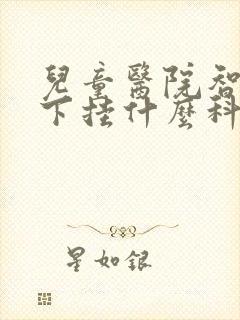 兒童醫院智
下挂什麼科
星如銀